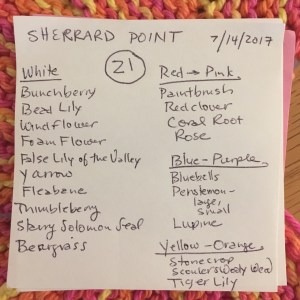 SHERRARD POINT 7/14/2017
21
White
Bunchberry
Bead Lily
Windflower
Foam Flower
False Lily of the Valley
Yarrow
Fleabane
Thimbleberry
Starry Solomon Seal
Beargrass
Red → Pink
Paintbrush
Red clover
Coral Root
Rose
Blue - Purple
Bluebells
Penstemon -
large,
small
Lupine
Yellow - Orange
Stonecrop
Scouler's Woolly Weed
Tiger Lily